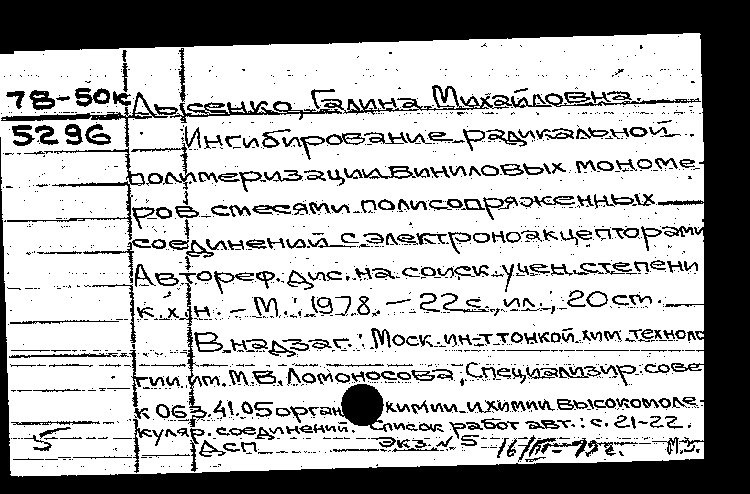 78-50к Лысенко, Галина Михайловна.
5296 Ингибирование радикальной
полимеризации виниловых мономе-
ров смесями полисопряженных
соединений с электроноакцепторами
Автореф. дис. на соиск. учен. степени
к. х. н. - М.: 1978. - 22 с., ил.; 20 см.
В надзаг.: Моск. ин-т тонкой хим. техноло
гии им. М.В. Ломоносова, Специализир. сове
к 063.41.05 орган химии и химии высокомоле-
куляр. соединений. Список работ авт.: с. 21-22.
5 Дсп экз. N 5 16/III-79г. М.З.